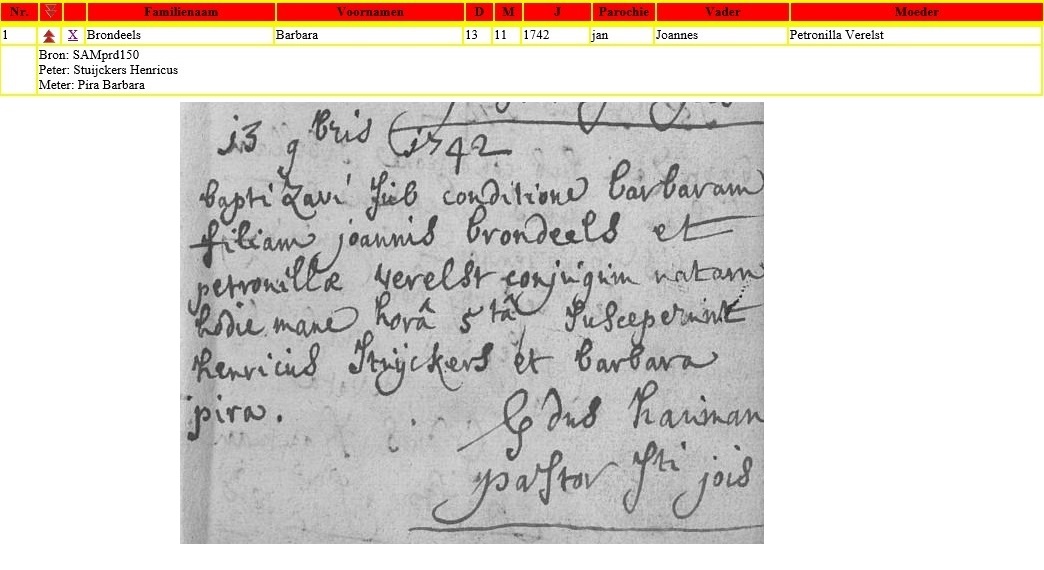 Nr. Familienaam Voornamen D M J Parochie Vader Moeder
1 X Brondeels Barbara 13 11 1742 jan Joannes Petronilla Verelst
Bron: SAMprd150
Peter: Stuijckers Henricus
Meter: Pira Barbara
13 9bris 1742
baptizavi sub conditione barbaram
filiam joannis brondeels et
petronillæ verelst conjugum natam
hodie mane horâ 5tâ susceperunt
henricus Stuijckers et barbara
pira.
hauman
pastor sti jois